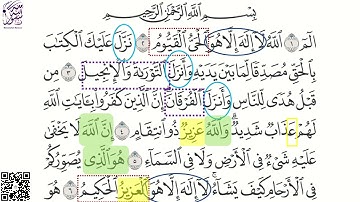 بِسْمِ اللَّهِ الرَّحْمَٰنِ الرَّحِيمِ
الٓمٓ ١ ٱللَّهُ لَآ إِلَٰهَ إِلَّا هُوَ ٱلْحَىُّ ٱلْقَيُّومُ ٢ نَزَّلَ عَلَيْكَ ٱلْكِتَٰبَ
بِٱلْحَقِّ مُصَدِّقًا لِّمَا بَيْنَ يَدَيْهِ وَأَنزَلَ ٱلتَّوْرَىٰةَ وَٱلْإِنجِيلَ ٣ مِن
قَبْلُ هُدًى لِّلنَّاسِ وَأَنزَلَ ٱلْفُرْقَانَ إِنَّ ٱلَّذِينَ كَفَرُوا۟ بِـَٔايَٰتِ ٱللَّهِ
لَهُمْ عَذَابٌ شَدِيدٌ وَٱللَّهُ عَزِيزٌ ذُو ٱنتِقَامٍ ٤ إِنَّ ٱللَّهَ لَا يَخْفَىٰ
عَلَيْهِ شَىْءٌ فِى ٱلْأَرْضِ وَلَا فِى ٱلسَّمَآءِ ٥ هُوَ ٱلَّذِى يُصَوِّرُكُمْ
فِى ٱلْأَرْحَامِ كَيْفَ يَشَآءُ لَآ إِلَٰهَ إِلَّا هُوَ ٱلْعَزِيزُ ٱلْحَكِيمُ ٦ هُوَ